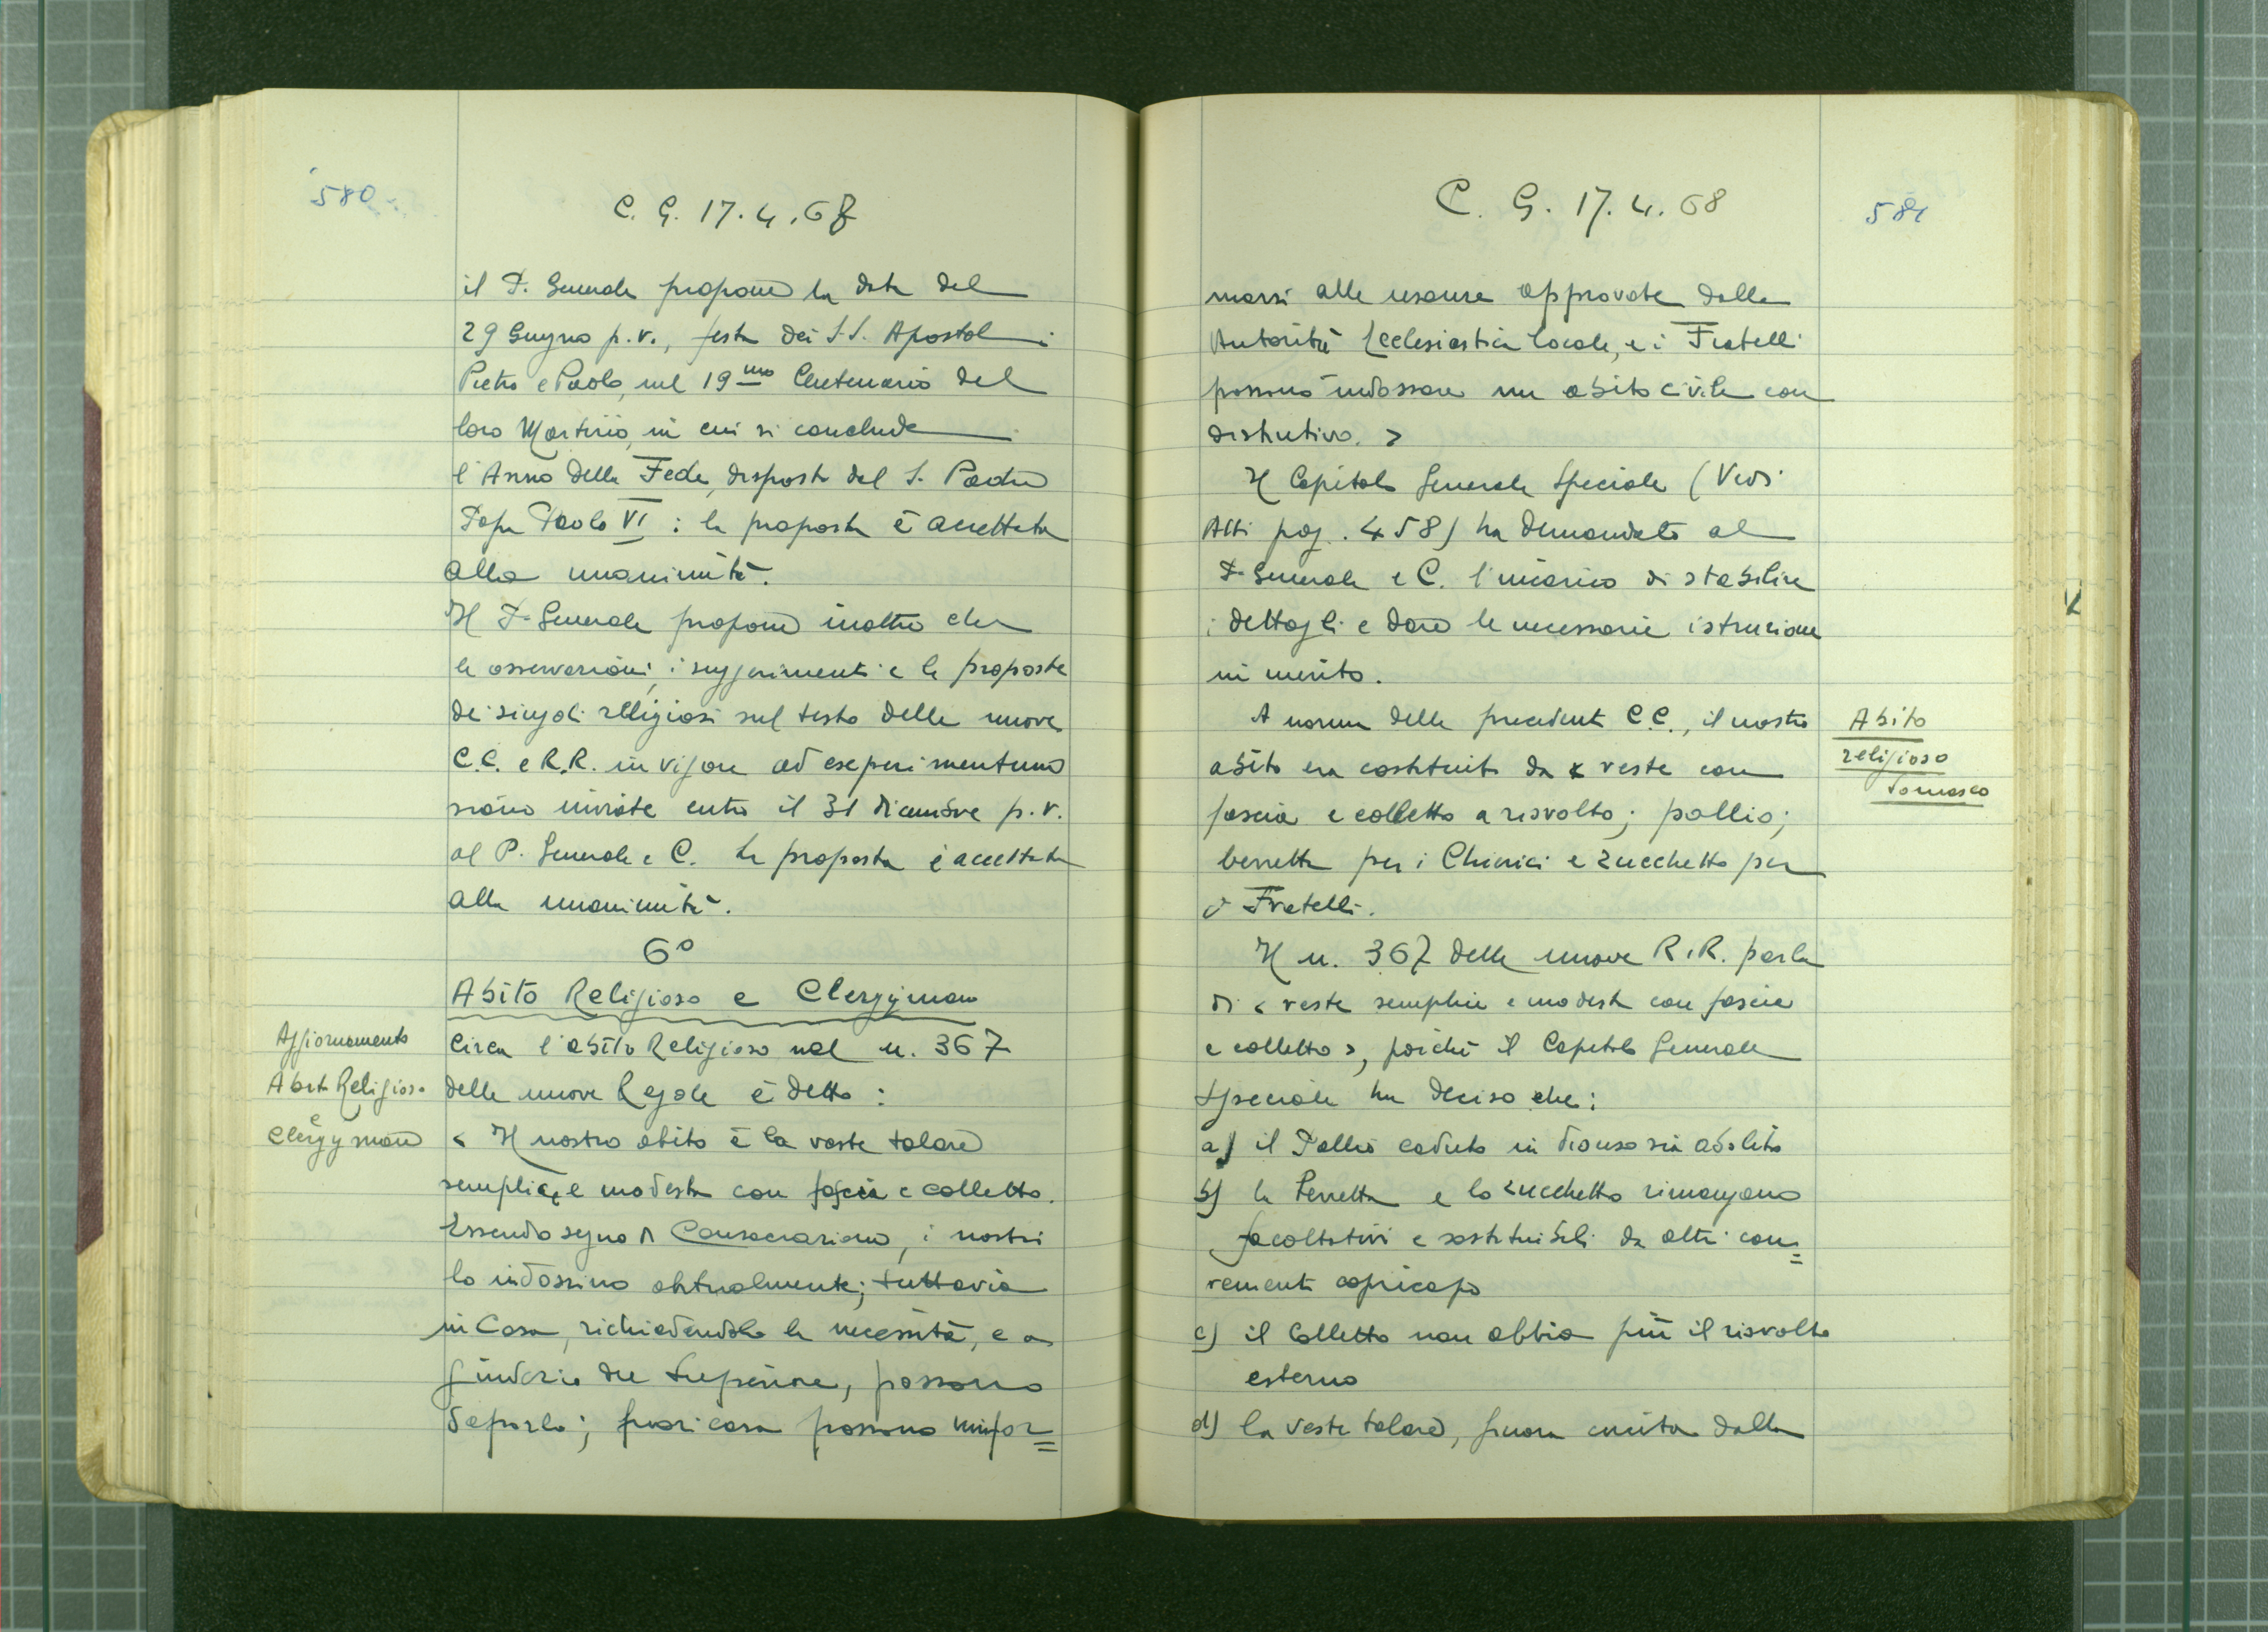 580
C. G. 17.4.68
il P. Generale propone la data del
29 Giugno p.v., festa dei S.S. Apostoli
Pietro e Paolo, nel 19mo Centenario del
loro Martirio, in cui si conclude
l'Anno della Fede, disposto dal S. Padre
Papa Paolo VI: la proposta è accettata
alla unanimità.
Il P. Generale propone inoltre che
le osservazioni, i suggerimenti e le proposte
dei singoli religiosi sul testo delle nuove
C.C. e R.R. in vigore ad esperimentum
siano inviate entro il 31 dicembre p.v.
al P. Generale e C. La proposta è accettata
alla unanimità.
6°
Abito Religioso e Clergyman
Aggiornamento
Abito Religioso
e
Clergyman
Circa l'abito Religioso nel n. 367
delle nuove Regole è detto:
< Il nostro abito è la veste talare
semplice e modesta con fascia e colletto.
Essendo segno di Consacrazione, i nostri
lo indossino abitualmente; tuttavia
in Casa, richiedendolo la necessità, e a
giudizio del Superiore, possono
deporlo; fuori casa possono unifor=
C. G. 17.4.68
581
marsi alle usanze approvate dalla
Autorità Ecclesiastica locale, e i Fratelli
possono indossare un abito civile con
distintivo. >
Il Capitolo Generale Speciale (Vedi
Atti pag. 458) ha demandato al
P. Generale e C. l'incarico di stabilire
i dettagli e dare le necessarie istruzioni
in merito.
A norma delle precedenti C.C., il nostro
abito era costituito da < veste con
fascia e colletto a risvolto; pallio;
berretta per i Chierici e zucchetto per
i Fratelli.
Abito
religioso
somasco
Il n. 367 delle nuove R.R. parla
di < veste semplice e modesta con fascia
e colletto >, poiché il Capitolo Generale
Speciale ha deciso che:
a) il Pallio caduto in disuso sia abolito
b) la berretta e lo zucchetto rimangano
facoltativi e sostituibili da altri con=
venienti copricapo
c) il Colletto non abbia più il risvolto
esterno
d) la veste talare, finora cucita dalla